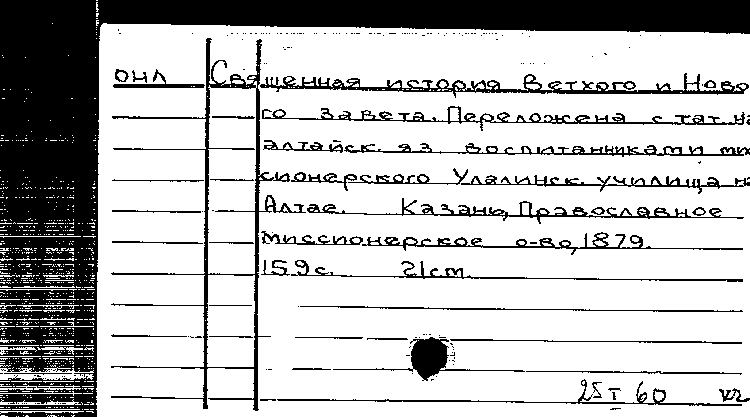 ОНЛ Священная история Ветхого и Ново
го завета. Переложена с тат. на
алтайск. яз воспитанниками мис
сионерского Улалинск. училища на
Алтае. Казань, Православное
миссионерское о-во, 1879.
159 с. 21 см.
25 I 60